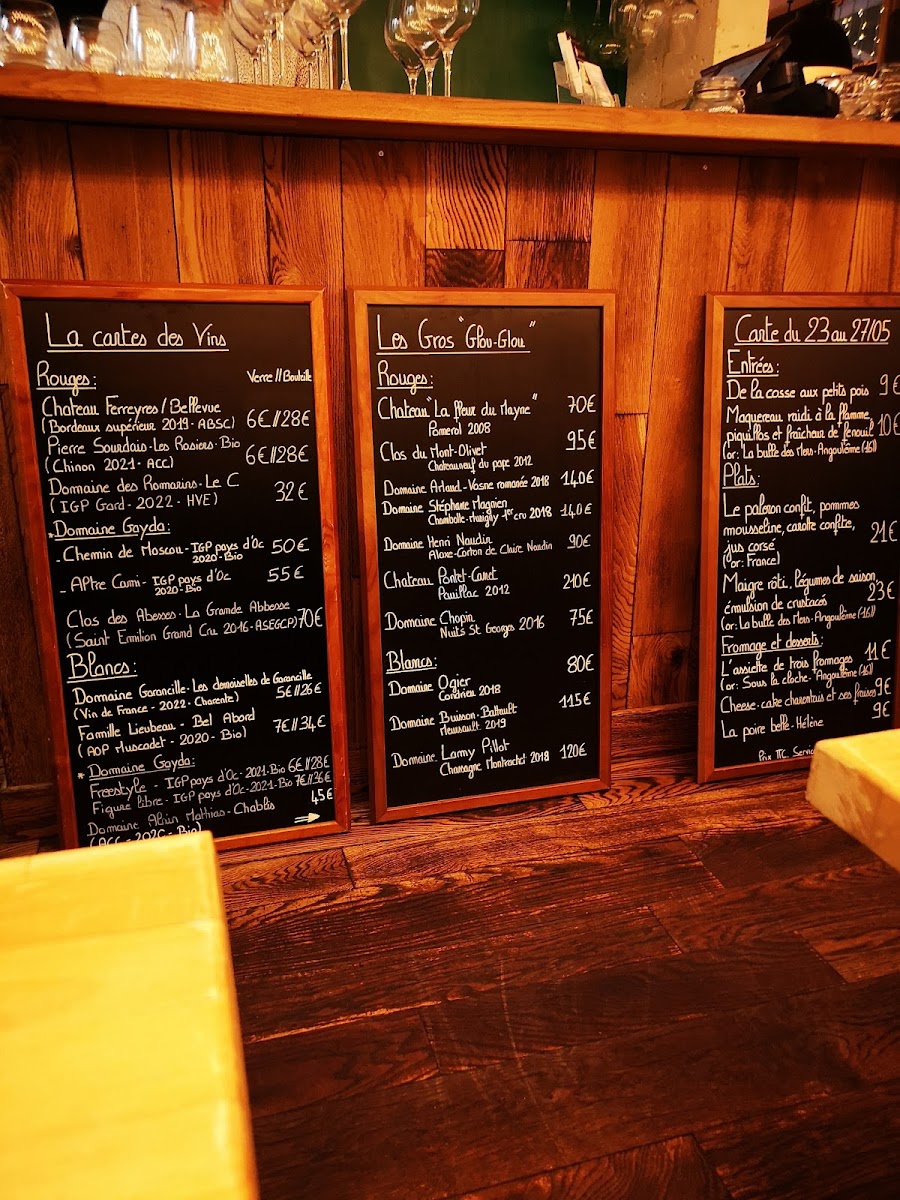 La cartes des Vins
Rouges: Verre // Bouteille
Chateau Ferreyres / Bellevue
(Bordeaux supérieur 2019 - ABSC) 6€//28€
Pierre Sourdais - Les Rosiers - Bio
(Chinon 2021 - ACC) 6€//28€
Domaine des Romarins - Le C
(IGP Gard - 2022 - HVE) 32€
*Domaine Gayda:
- Chemin de Moscou - IGP pays d'Oc 50€
2020 - Bio
- Altre Cami - IGP pays d'Oc 55€
2020 - Bio
Clos des Abesses - La Grande Abbesse
(Saint Emilion Grand Cru 2016 - ASEGCP) 70€
Blancs:
Domaine Garancille - Les demoiselles de Garancille
(Vin de France - 2022 - Charente) 5€//26€
Famille Lieubeau - Bel Abord
(AOP Muscadet - 2020 - Bio) 7€//34€
* Domaine Gayda:
Freestyle - IGP pays d'Oc - 2021 - Bio 6€//28€
Figure libre - IGP pays d'Oc - 2021 - Bio 7€//36€
Domaine Alain Mathias - Chablis 45€
Les Gros "Glou-Glou"
Rouges:
Chateau "La fleur du Mayne" 70€
Pomerol 2008
Clos du Mont-Olivet 95€
Chateauneuf du pape 2012
Domaine Arlaud - Vosne romanée 2018 140€
Domaine Stéphane Magnien
Chambolle-Musigny 1er cru 2018 140€
Domaine Henri Naudin 90€
Aloxe-Corton de Claire Naudin
Chateau Pontet-Canet 210€
Pauillac 2012
Domaine Chopin 75€
Nuits St Georges 2016
Blancs: 80€
Domaine Ogier
Condrieu 2018
Domaine Buisson-Battault 115€
Meursault 2019
Domaine Lamy Pillot 120€
Chassagne Montrachet 2018
Carte du 23 au 27/05
Entrées:
De la cosse aux petits pois 9€
Maquereau raidi à la flamme,
piquillos et fraîcheur de fenouil 10€
(or: La bulle des Mers - Angoulême (16))
Plats:
Le paleron confit, pommes
mousseline, carotte confite,
jus corsé 21€
(or: France)
Maigre rôti, légumes de saison,
émulsion de crustacés 23€
(or: La bulle des Mers - Angoulême (16))
Fromage et desserts:
L'assiette de trois fromages 11€
(or: Sous la cloche - Angoulême (16))
Cheese-cake charentais et ses fraises 9€
La poire belle-Hélène 9€
Prix TTC